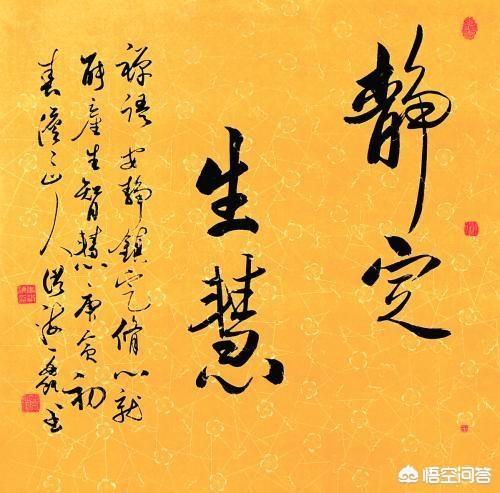 静定
生慧
禅语安静镇定修心就
能产生智慧庚寅初
春溪山人洪
悟空问答